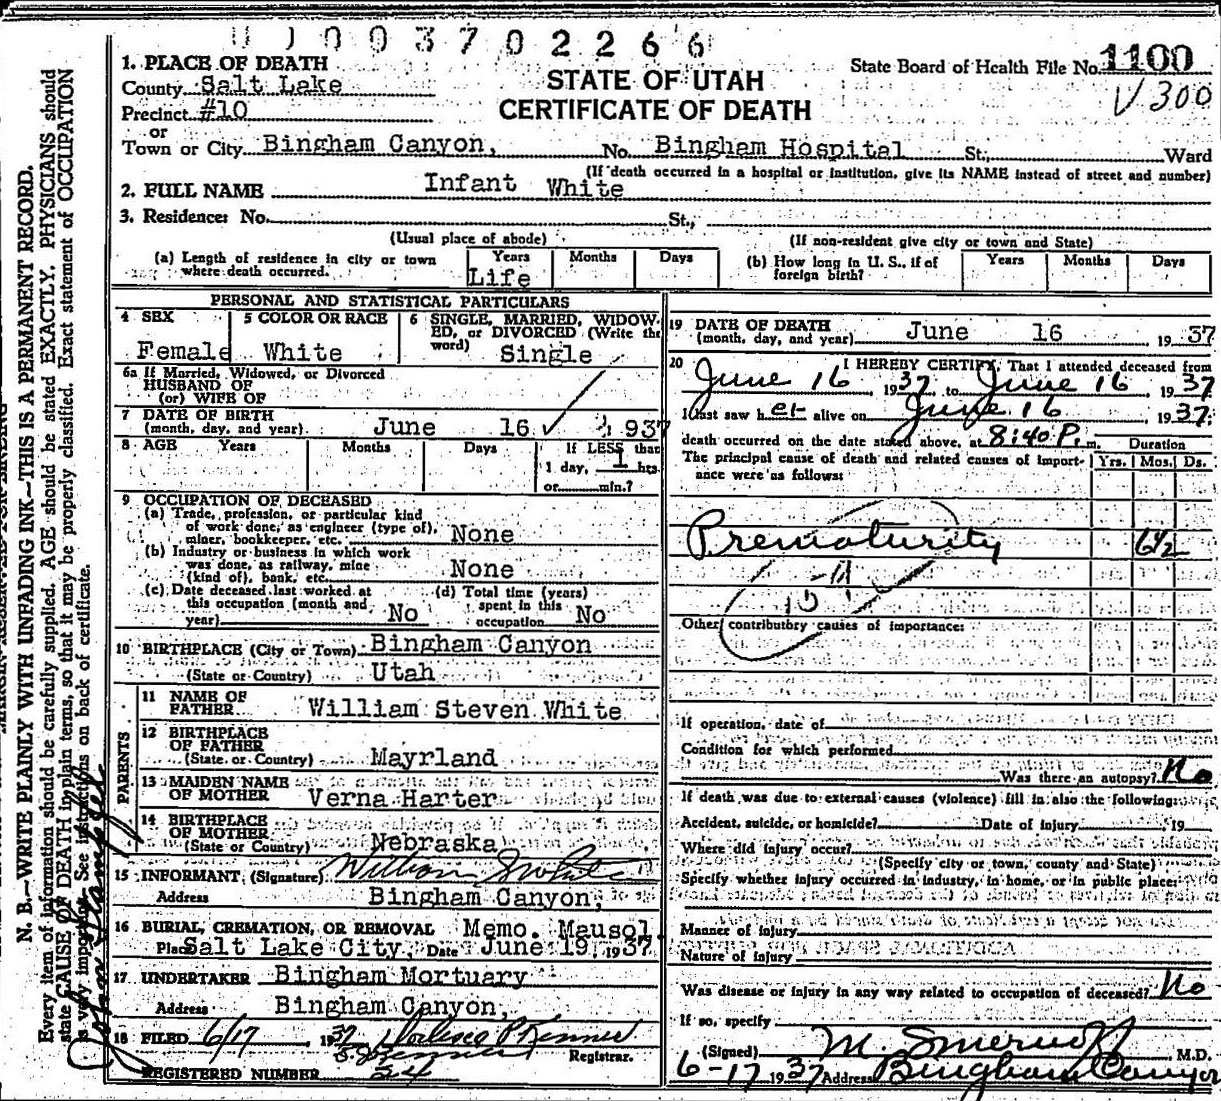 0 0 0 3 7 0 2 2 6 6
1. PLACE OF DEATH
County Salt Lake
Precinct #10
or
Town or City Bingham Canyon, No. Bingham Hospital St; Ward
STATE OF UTAH
CERTIFICATE OF DEATH
State Board of Health File No. 1100
V 300
(If death occurred in a hospital or institution, give its NAME instead of street and number)
2. FULL NAME Infant White
3. Residence: No. St.,
(Usual place of abode) (If non-resident give city or town and State)
(a) Length of residence in city or town where death occurred. Years Life Months Days
(b) How long in U. S., if of foreign birth? Years Months Days
PERSONAL AND STATISTICAL PARTICULARS
4 SEX Female
5 COLOR OR RACE White
6 SINGLE, MARRIED, WIDOWED, or DIVORCED (Write the word) Single
6a If Married, Widowed, or Divorced
HUSBAND OF
(or) WIFE OF
7 DATE OF BIRTH
(month, day, and year) June 16 1937
8 AGE Years Months Days If LESS than
1 day, 1 hrs.
or min.?
9 OCCUPATION OF DECEASED
(a) Trade, profession, or particular kind
of work done, as engineer (type of),
miner, bookkeeper, etc. None
(b) Industry or business in which work
was done, as railway, mine
(kind of), bank, etc. None
(c) Date deceased last worked at
this occupation (month and
year) No
(d) Total time (years)
spent in this
occupation No
10 BIRTHPLACE (City or Town) Bingham Canyon
(State or Country) Utah
PARENTS
11 NAME OF
FATHER William Steven White
12 BIRTHPLACE
OF FATHER
(State or Country) Mayrland
13 MAIDEN NAME
OF MOTHER Verna Harter
14 BIRTHPLACE
OF MOTHER
(State or Country) Nebraska
15 INFORMANT (Signature) William S White
Address Bingham Canyon,
16 BURIAL, CREMATION, OR REMOVAL Memo. Mausol.
Place Salt Lake City, Date June 19, 1937
17 UNDERTAKER Bingham Mortuary
Address Bingham Canyon,
18 FILED 6/17, 1937
Registrar.
REGISTERED NUMBER 24
19 DATE OF DEATH
(month, day, and year) June 16, 1937
20 I HEREBY CERTIFY, That I attended deceased from
June 16 1937, to June 16, 1937
I last saw her alive on June 16 1937;
death occurred on the date stated above, at 8:40 P. m.
Duration
The principal cause of death and related causes of importance were as follows: Yrs. Mos. Ds.
Prematurity 6½
Other contributory causes of importance:
If operation, date of
Condition for which performed
Was there an autopsy? No
If death was due to external causes (violence) fill in also the following:
Accident, suicide, or homicide? Date of injury 19
Where did injury occur?
(Specify city or town, county and State)
Specify whether injury occurred in industry, in home, or in public place:
Manner of injury
Nature of injury
Was disease or injury in any way related to occupation of deceased? No
If so, specify
(Signed) M. M.D.
6-17 1937 Address Bingham Canyon
N. B.—WRITE PLAINLY WITH UNFADING INK—THIS IS A PERMANENT RECORD.
Every item of information should be carefully supplied. AGE should be stated EXACTLY. PHYSICIANS should
state CAUSE OF DEATH in plain terms, so that it may be properly classified. Exact statement of OCCUPATION
is very important. See instructions on back of certificate.